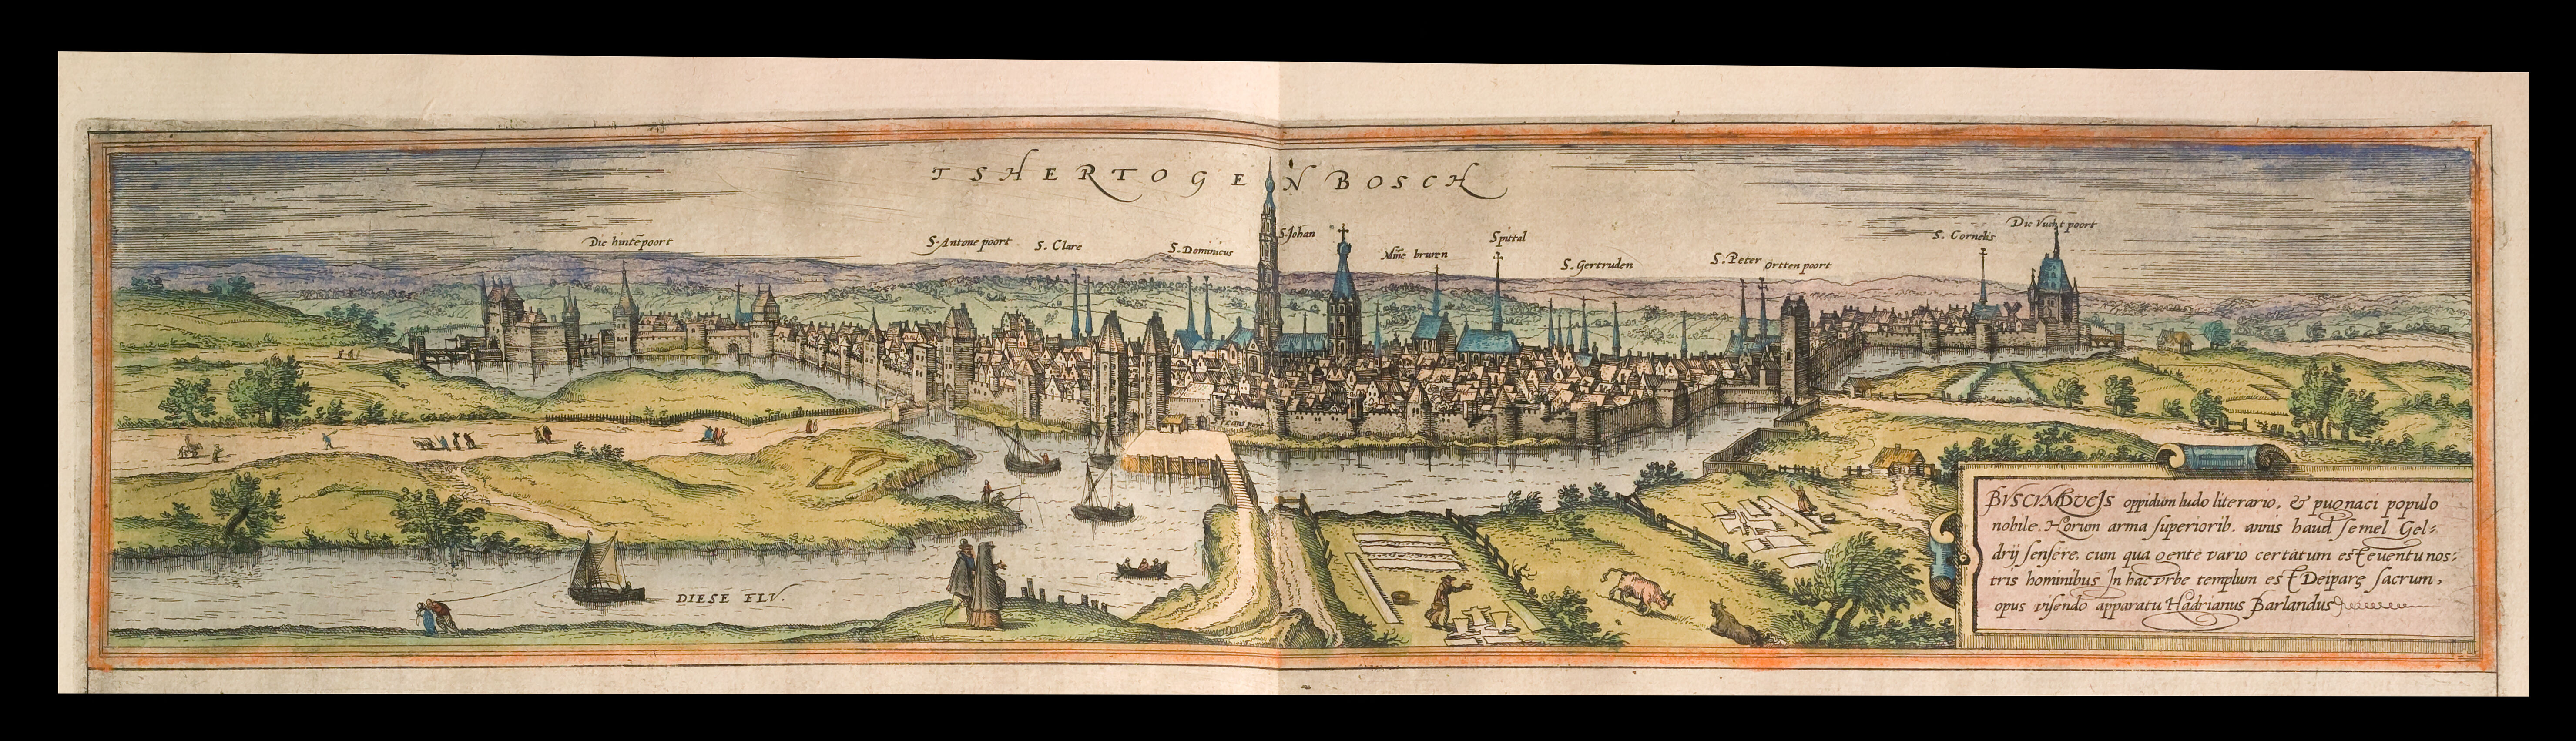 TSHERTOGENBOSCH
Die hintēpoort
S. Antone poort
S. Clare
S. Dominicus
S. Johan
Mine bruren
Spittal
S. Gertruden
S. Peter
Ortten poort
S. Cornelis
Die Vucht poort
DIESE FLV.
BVSCVMDVCIS oppidum ludo literario, & pugnaci populo
nobile. Horum arma superiorib. annis haud semel Gel-
drij sensere, cum qua gente vario certatum est eventu nos-
tris hominibus In hac vrbe templum est Deiparę sacrum,
opus visendo apparatu Hadrianus Barlandus